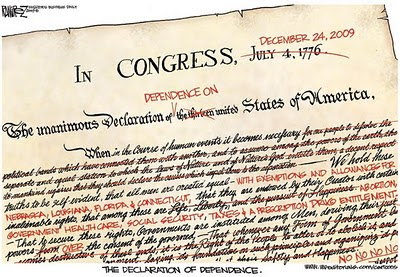 RAMIREZ
INVESTOR'S BUSINESS DAILY
DECEMBER 24, 2009
IN CONGRESS, JULY 4, 1776.
DEPENDENCE ON
The unanimous Declaration of the thirteen united States of America,
When in the Course of human events it becomes necessary for one people to dissolve the
political bands which have connected them with another, and to assume among the powers of the earth, the
separate and equal station to which the Laws of Nature and of Nature's God entitle them, a decent respect
to the opinions of mankind requires that they should declare the causes which impel them to the separation. We hold these
truths to be self evident, that all men are created equal WITH EXEMPTIONS AND ALLOWANCES FOR
NEBRASKA, LOUISIANA, FLORIDA & CONNECTICUT, that they are endowed by their Creator with certain
unalienable rights, that among these are Life, Liberty, and the pursuit of Happiness ABORTION,
GOVERNMENT HEALTHCARE, SOCIAL SECURITY, TAXES & A PRESCRIPTION DRUG ENTITLEMENT.
That to secure these rights, Governments are instituted among Men, deriving their just
powers OVER the consent of the governed. That whenever any Form of Government
becomes destructive of these ends, it is the Right of the People to alter or to abolish it, and
Safety and Happiness.
NO NO NO NO
THE DECLARATION OF DEPENDENCE.
www.IBDeditorials.com/cartoons